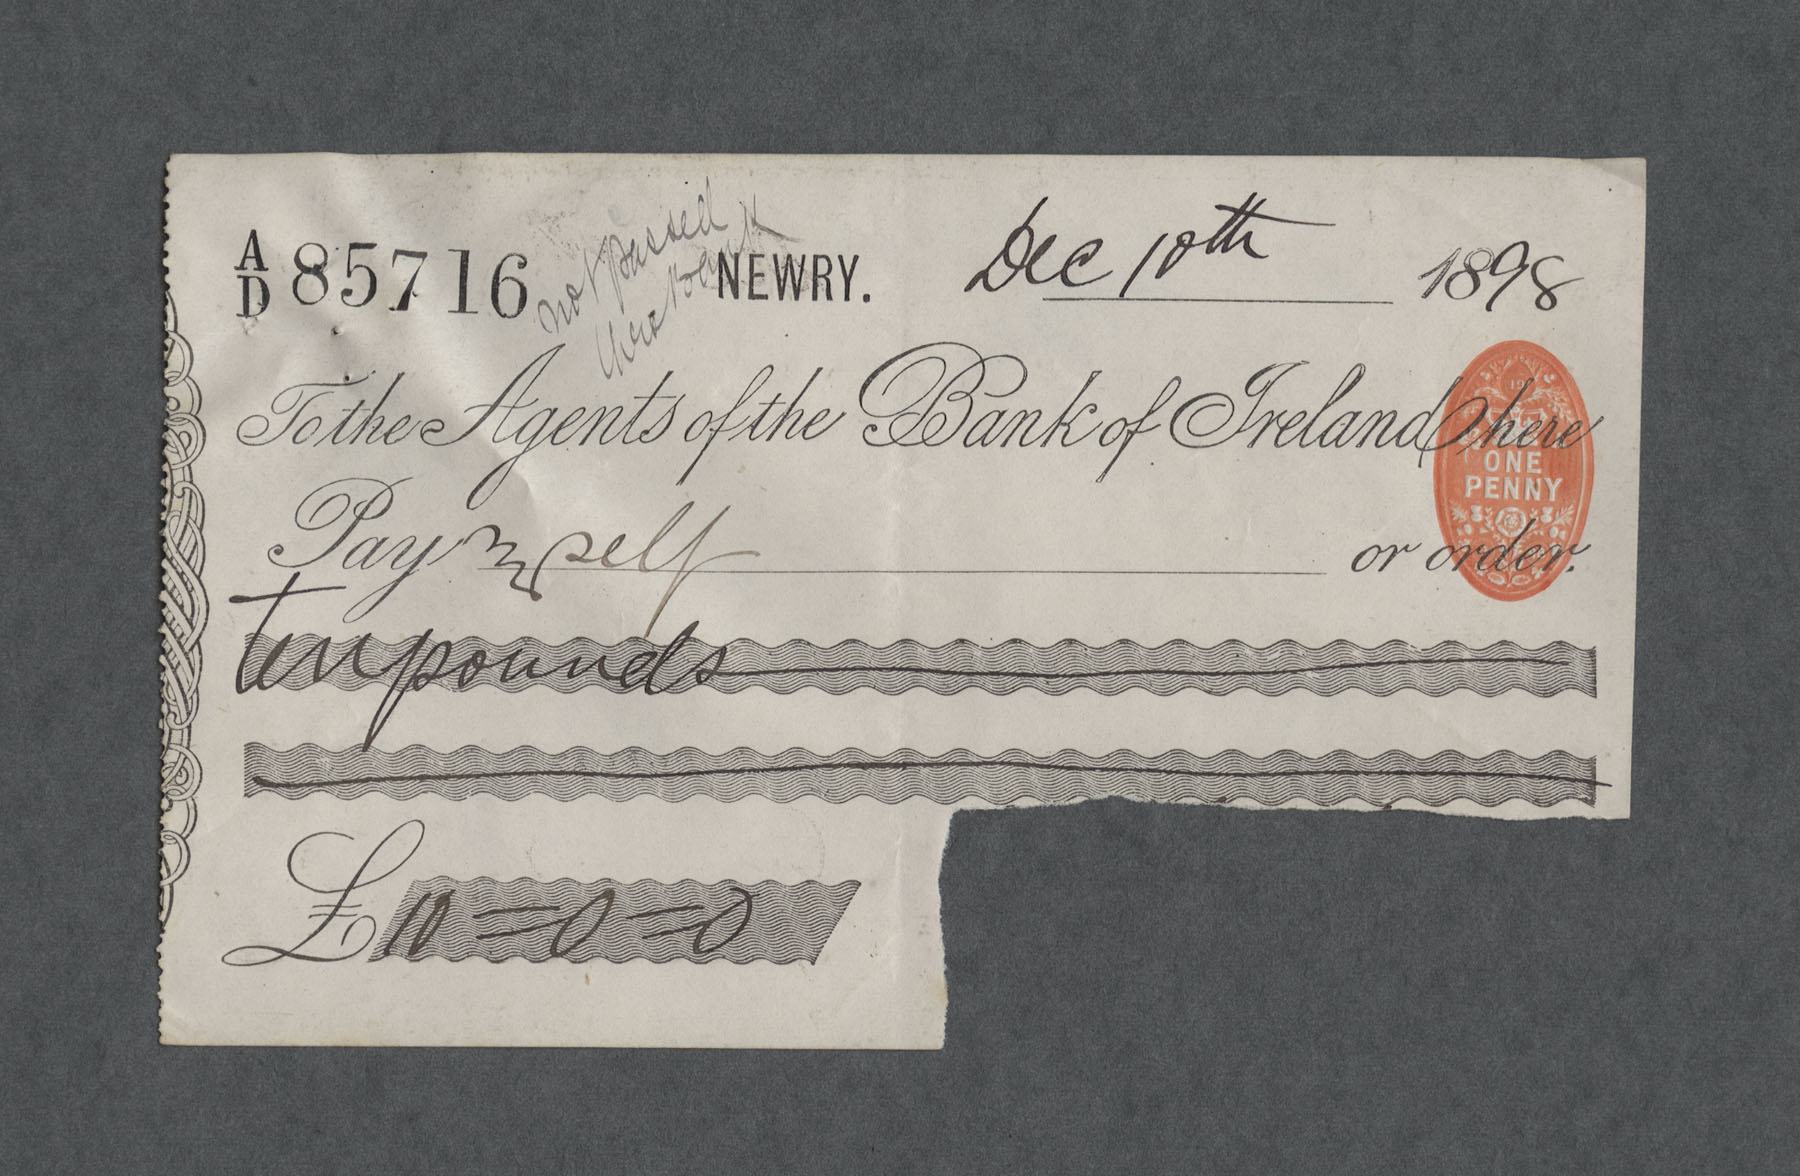 A/D 85716
not passed
NEWRY.
Dec 10th 1898
To the Agents of the Bank of Ireland here
ONE
PENNY
Pay myself or order.
ten pounds
£10=0=0